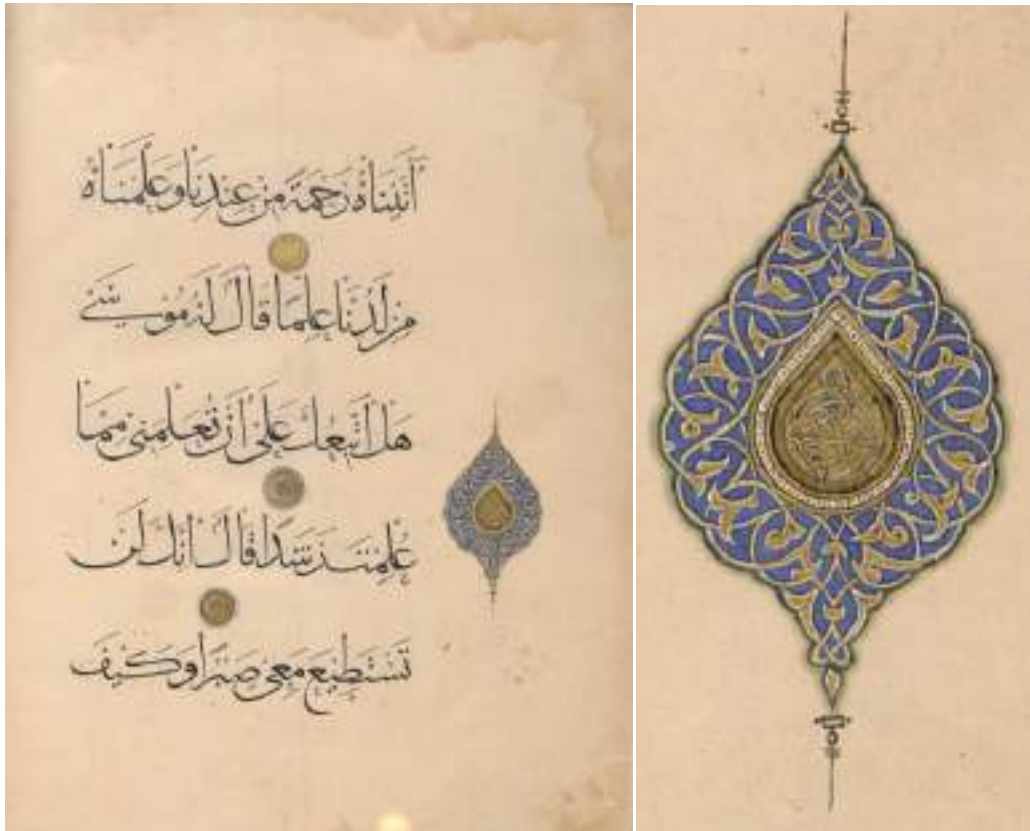 آتيناه رحمة من عندنا وعلمناه
من لدنا علما قال له موسى
هل اتبعك على ان تعلمنى مما
علمت رشدا قال انك لن
تستطيع معى صبرا وكيف